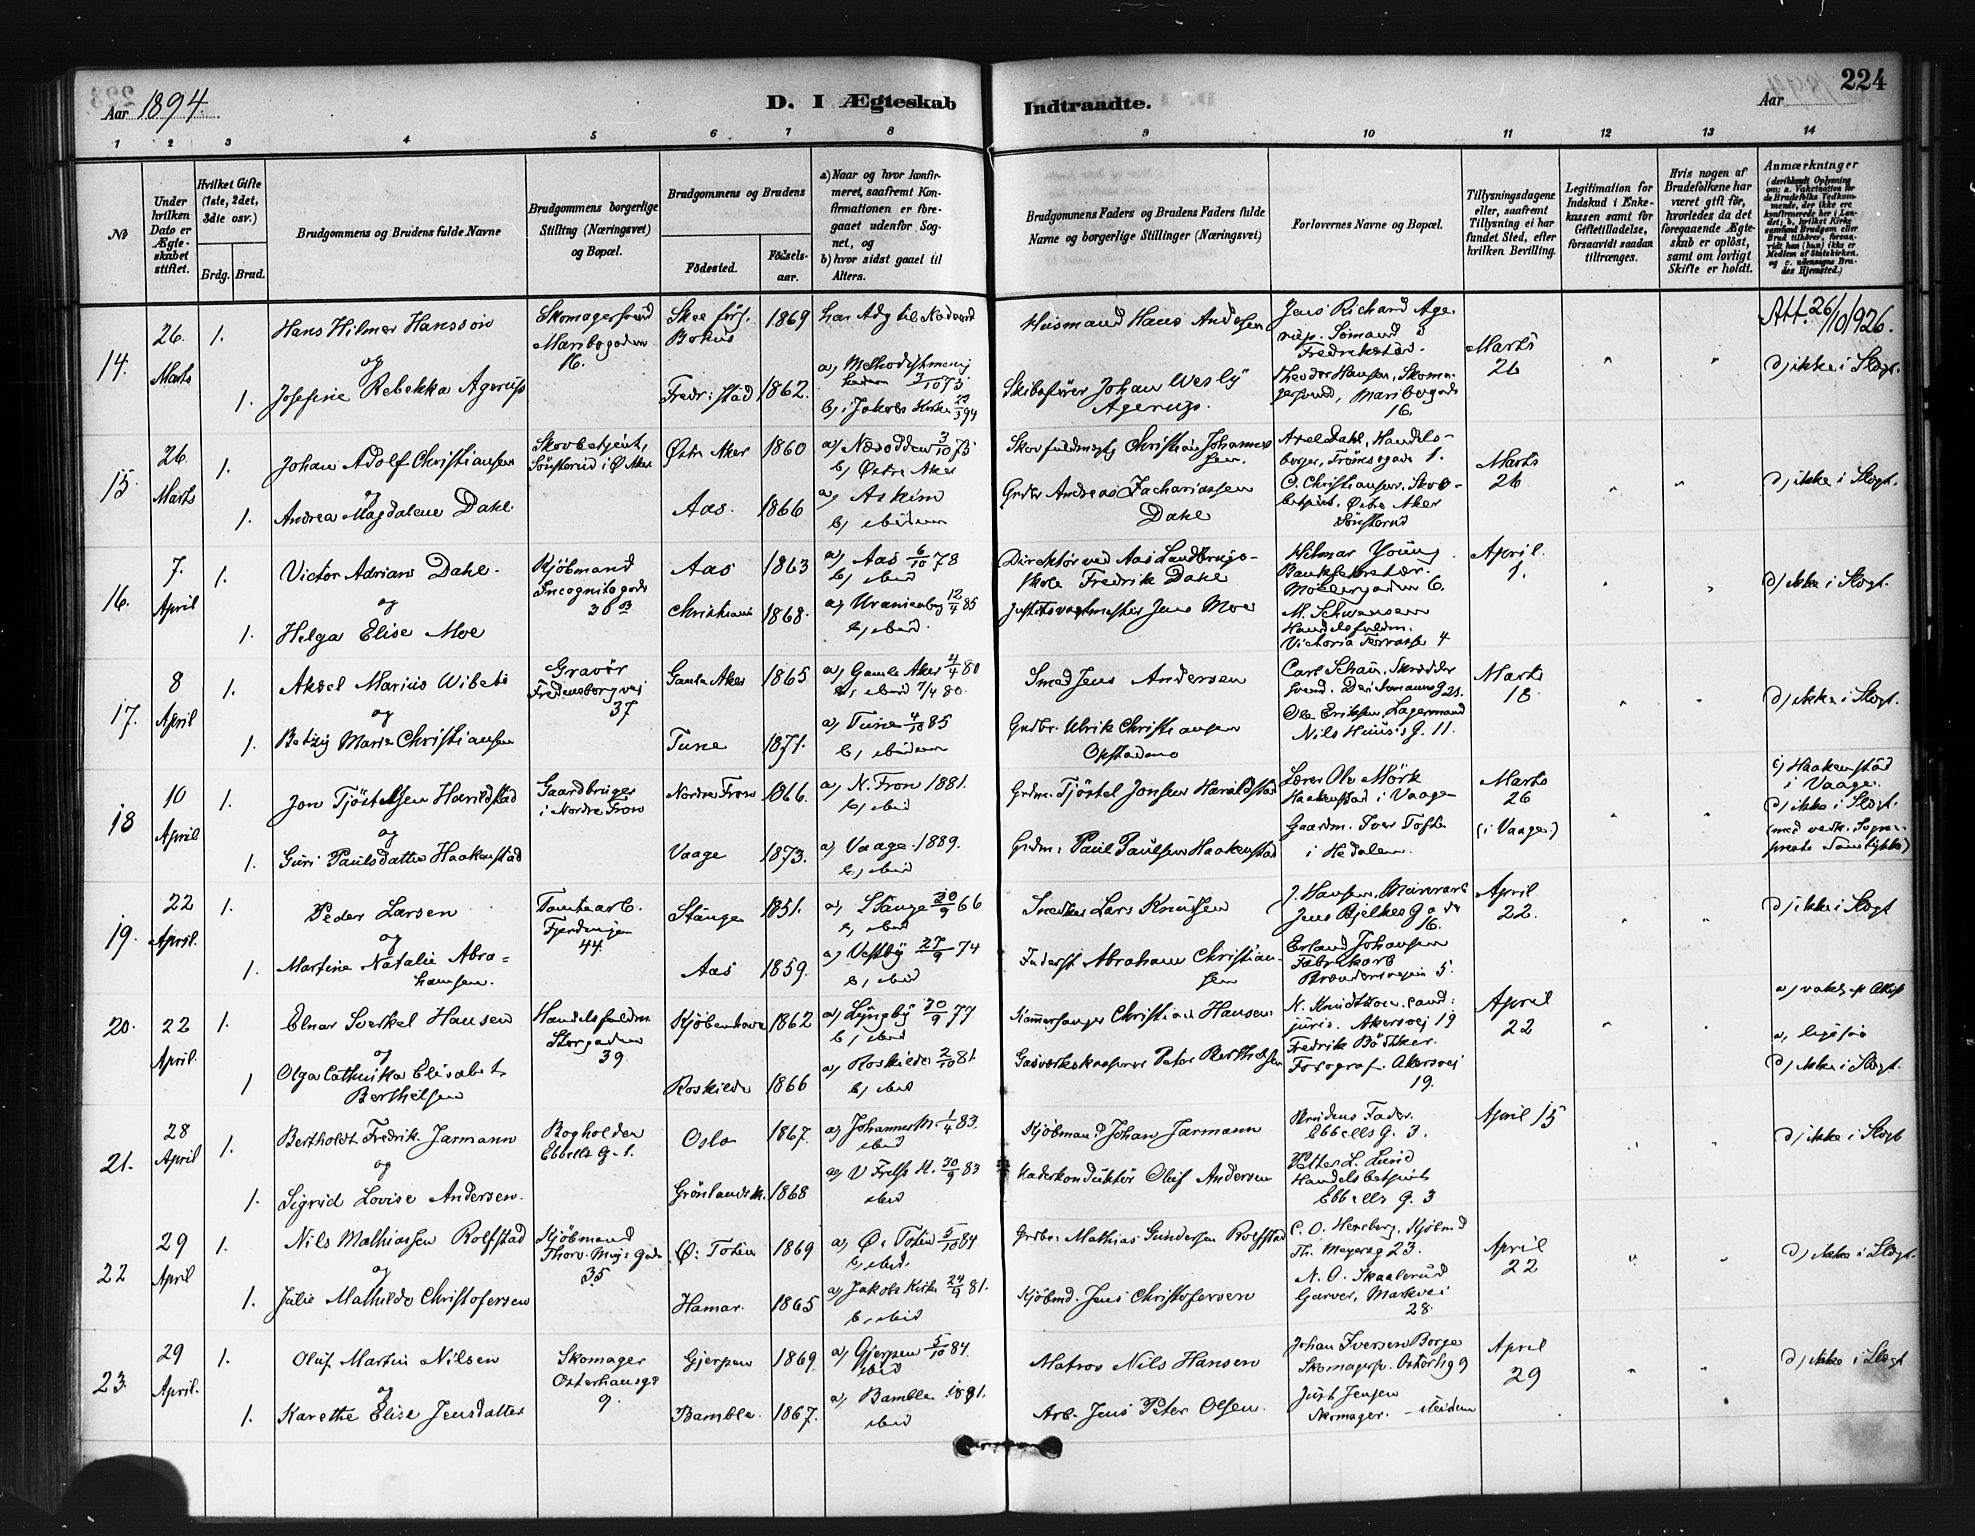 Aar 1894.
D. I Ægteskab Indtraadte.
Aar
224
1 2 3 4 5 6 7 8 9 10 11 12 13 14
No
Under hvilken Dato er Ægteskabet stiftet.
Hvilket Gifte (1ste, 2det, 3die osv.)
Brdg. Brud.
Brudgommens og Brudens fulde Navne
Brudgommens borgerlige Stilling (Næringsvei) og Bopæl.
Brudgommens og Brudens
Födested. Födselsaar.
a) Naar og hvor konfirmeret, saafremt Konfirmationen er foregaaet udenfor Sognet, og
b) hvor sidst gaaet til Alters.
Brudgommens Faders og Brudens Faders fulde Navne og borgerlige Stillinger (Næringsvei)
Forlovernes Navne og Bopæl.
Tillysningsdagene eller, saafremt Tillysning ei har fundet Sted, efter hvilken Bevilling.
Legitimation for Indskud i Enkekassen samt for Giftetilladelse, forsaavidt saadan tiltrænges.
Hvis nogen af Brudefolkene har været gift för, hvorledes da det foregaaende Ægteskab er oplöst, samt om lovligt Skifte er holdt.
Anmærkninger
14. 26. Marts 1. 1.
Hans Hilmer Hansson
og
Josefine Rebekka Agerup
Skomagersvend
Maribogaden
16.
1869
Fredr:stad 1862.
b, i Jakobs Kirke
Husmand Hans Andersen
Skibsfører Johan Wesly
Agerup.
Jens Richard Agerup. Sømand i
Fredrikstad.
Theodor Hansen, Skomagersvend, Maribogade
16.
Marts
26
Att. 26/10 1926.
d) ikke i Slægt.
15. 26 Marts 1. 1.
Johan Adolf Christiansen
og
Andrea Magdalene Dahl
Skovbetjent,
Østre Aker 1860
Aas. 1866
a) Næsodden 3/10 75
b, Østre Aker
a, Askim
b, ibidem
Skovfuldmægtig Christian Johannessen.
Grdbr Andreas Zachariassen
Dahl
Axel Dahl, Handelsborger,
O. Christiansen, Skovbetjent, Østre Aker
Marts
26
d) ikke i Slægt.
16. 7. April 1. 1.
Victor Adrian Dahl.
og
Helga Elise Moe
Kjøbmand
Incognitogade
Aas 1863
Christiania 1868.
a, Aas 6/10 78
b, ibid
a, Uranienborg 12/4 85
b, ibid.
Direktør ved Aas Landbrugsskole Fredrik Dahl
Jens Moe
Hilmar Young
Banksekretær.
Møllergaden 6.
M. Schwensen
Handelsfuldm.
Victoria Terrasse 4
April.
1.
d) ikke i Slægt.
17. 8 April 1. 1.
Aksel Marius Wibeto
og
Betzy Marie Christiansen
Gravør
Fredensborgvei
37
Gamle Aker 1865
Tune 1871.
a, Gamle Aker 4/4 80
b, ibid 7/4 80.
a) Tune 4/10 85
b, ibidem
Smed Jens Andersen
Grdbr. Ulrik Christiansen
Opstadmo
Ole Eriksen, Lagermand
Nils Huus's G. 11.
Marts
18
d) ikke i Slægt.
18 10 April 1. 1.
Jon Tjøstelsen Harildstad
og
Guri Paulsdatter Haakenstad
Gaardbruger
i Nordre Fron
Nordre Fron 1866.
Vaage 1873.
a, N. Fron 1881.
b, ibid
a, Vaage. 1889.
b, ibid
Grdm. Tjøstel Jonsen Harildstad
Grdm. Paul Paulsen Haakenstad
Lærer Ole Mørk
Haakenstad i Vaage
Gaardm. Iver Tofte
i Hedalen.
Marts
26
(i Vaage)
c) Haakenstad
i Vaage.
d) ikke i Slægt.
19. 22 April. 1. 1.
Peder Larsen
og
Martine Natalie Abrahamsen.
Tomtearb.
44.
Stange 1851.
Aas 1859.
a, Stange 30/9 66
b, ibid
a, Vestby 27/9 74
b, ibid
Lars Knudsen
Inderst Abraham Christiansen
J. Hansen, Murerarb
Jens Bjelkes Gade
16.
Erland Johansen
Fabrikarb
5.
April
22.
d) ikke i Slægt
20. 22 April. 1. 1
Elnar Sverkel Hansen
og
Olga Cathrika Elisabet
Berthelsen
Handelsfuldm
Storgaden
39.
Kjøbenhavn 1862
Roskilde 1866
a, Lyngby 30/9 77
b, ibid
a, Roskilde 2/10 81.
b, ibid
Kammersanger Christian Hansen
Peter Berthelsen
N. Knudtzon, cand:
juris. Akersvej 19
Fredrik Bödtker.
Fotograf. Akersvej
19.
April
22
d) ikke i Slægt.
21. 28 April 1. 1.
Bertholdt Fredrik Jarmann
og
Sigrid Lovise Andersen.
Bogholder
Ebbells G. 1.
Oslo 1867.
Grønlands K. 1868
a, Johannes M. 1/4 83.
ibid
a, V Frels K. 30/9 83
ibid
Kjøbmand Johan Jarmann
Oluf Andersen
Brudens Fader.
Ebbells G. 3.
Petter L. Lund
Handelsbetjent
Ebbells G. 3
April 15
d) ikke i Slægt
22 29 April 1. 1.
Nils Mathiassen Rolfstad
og
Julie Mathilde Christofersen
Kjøbmand
Thorv. Meyers Gade
35
Ø: Toten 1869
Hamar. 1865
a, Ø: Toten 5/10 84
b, ibid.
a, Jakobs Kirke 24/4 81.
b, ibid
Grdbr. Mathias Gundersen Rolfstad
Kjøbmd. Jens Christofersen
C. O. Hersberg, Kjøbmd
Th. Meyersg 23.
N. O. Skaalerud
Garver, Markvei
28.
April
22
d) ikke i Slægt.
23. 29 April. 1. 1.
Oluf Martin Nilsen
og
Karethe Elise Jensdatter
Skomager
Osterhausg.
9.
Gjerpen 1869.
Bamble. 1867.
a, Gjerpen 5/10 84.
ibid
a, Bamble 1881.
ibid
Matros Nils Hansen
Arb. Jens Peter Olsen.
Johan Iversen Borge
Just Jensen
Skomager. – ibidem
April
29
d) ikke i Slægt